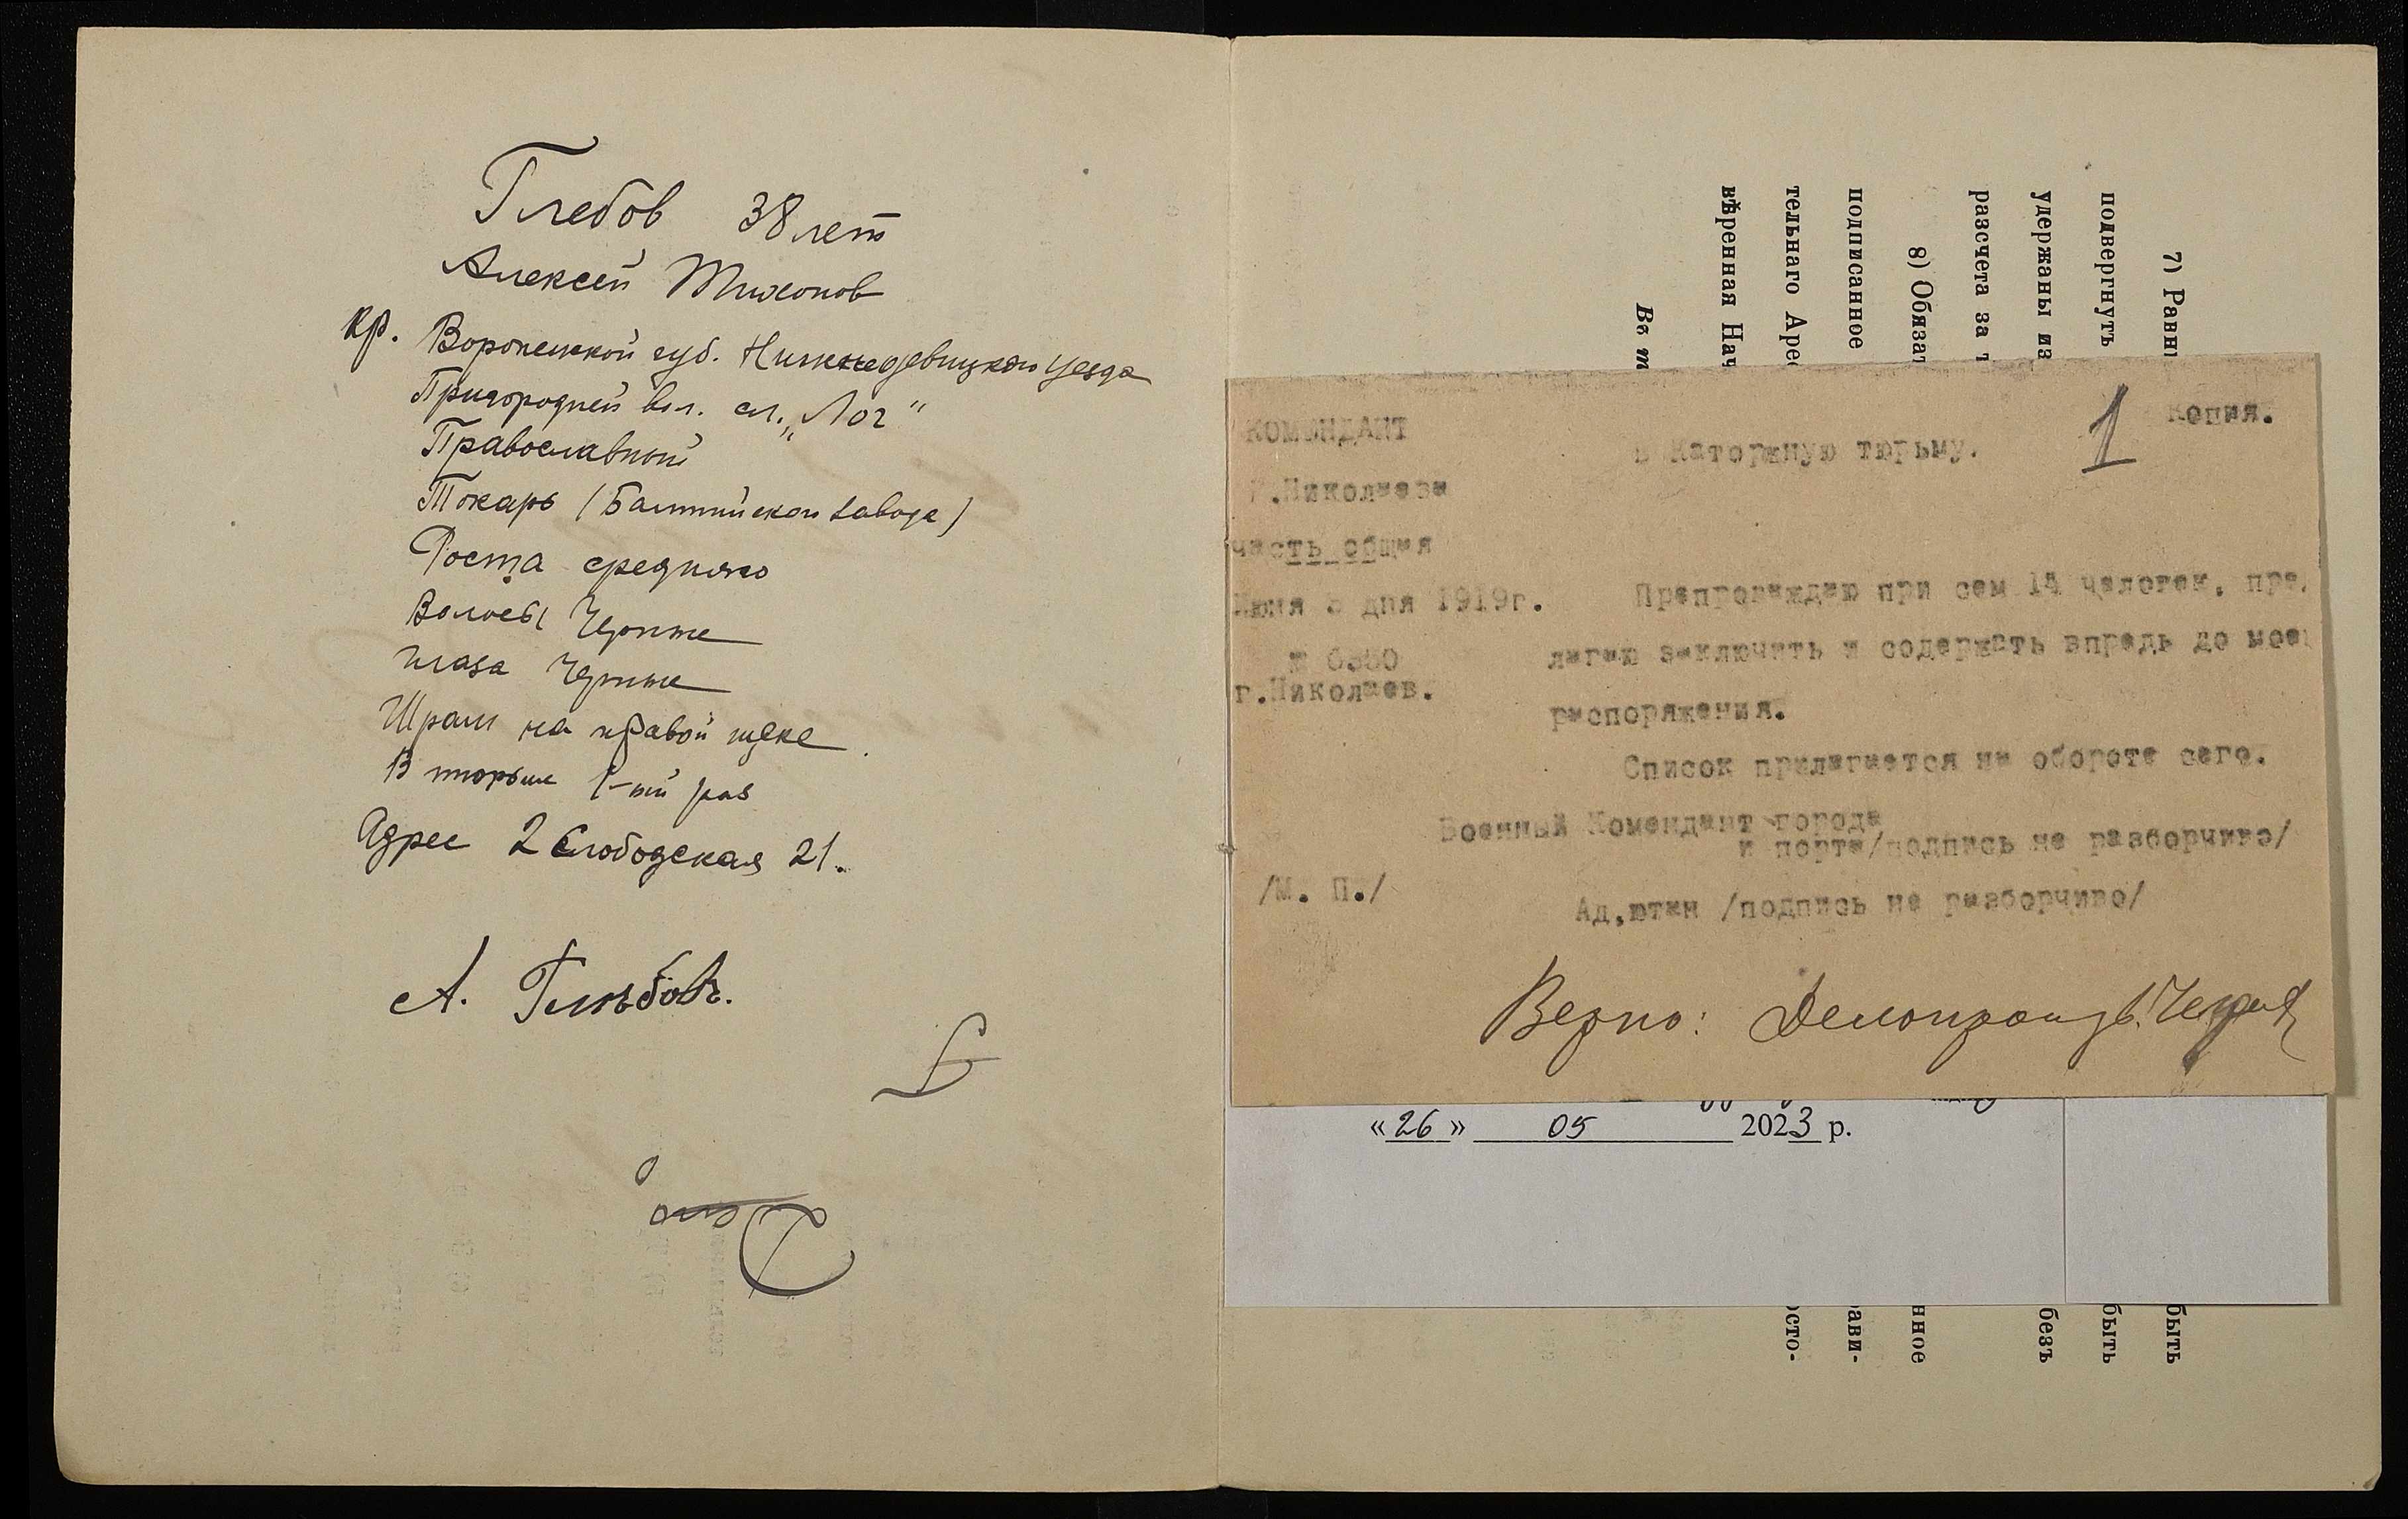 Глебов 38 лет
Алексей Тихонов
кр. Воронежской губ. Нижнедевицкого уезда
Пригородней вол. сл. „Лог"
Православный
Токарь (Балтийском завода)
Роста среднего
Волосы Черные
глаза Черные
Шрам на правой щеке
В тюрьме 1-ый раз
Адрес 2 Слободская 21.
А. Глѣбовъ.
7) Равн
подвергнуть
удержаны из
разсчета за т
8) Обязат
подписанное
тельнаго Аре
вѣренная Нач
Въ т
КОМЕНДАНТ
Г.Николаева
часть общая
Июня 5 дня 1919г.
№ 6350
г.Николаев.
Копия.
1
в Каторжную тюрьму.
Препровождаю при сем 14 человек, пред
лагаю заключить и содержать впредь до моег
распоряжения.
Список прилагается на обороте сего.
Военный Комендант города
и порта/подпись не разборчиво/
/М. П./
Ад,ютан /подпись не разборчиво/
Верно: Делопроизв.
«26» 05 2023 р.
быть
быть
безъ
нное
ави-
осто-